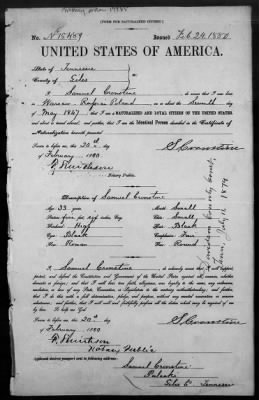 (FORM FOR NATURALIZED CITIZEN.)
No. 15489 Issued Feb. 24. 1880
UNITED STATES OF AMERICA.
State of Tennessee
County of Giles
I, Samuel Cronstine do swear that I was born
in Warsaw Poland on the seventh day of
May 1847; that I am a NATURALIZED AND LOYAL CITIZEN OF THE UNITED STATES
and about to travel abroad; and further, that I am the Identical Person described in the Certificate of
Naturalization herewith presented
Sworn to before me, this 20th day
of February 1880
Notary Public.
S Cronstine
Description of Samuel Cronstine
Age 33 years
Stature five feet six inches Eng.
Forehead High
Eyes Black
Nose Roman
Mouth Small
Chin Small
Hair Black
Complexion Fair
Face Round
Davidson County Court,
Tenn, July 1874
I, Samuel Cronstine do solemnly swear that I will support,
protect, and defend the Constitution and Government of the United States against all enemies, whether
domestic or foreign; and that I will bear true faith, allegiance, and loyalty to the same, any ordinance,
resolution, or law of any State, Convention, or Legislature to the contrary notwithstanding; and further,
that I do this with a full determination, pledge, and purpose, without any mental reservation or evasion
whatsoever; and further, that I will well and faithfully perform all the duties which may be required of me
by law. So help me God.
Sworn to before me, this 20th day
of February 1880
Notary Public
S Cronstine
Applicant desires passport sent to following address:
Samuel Cronstine
Pulaski
Giles Co Tennessee